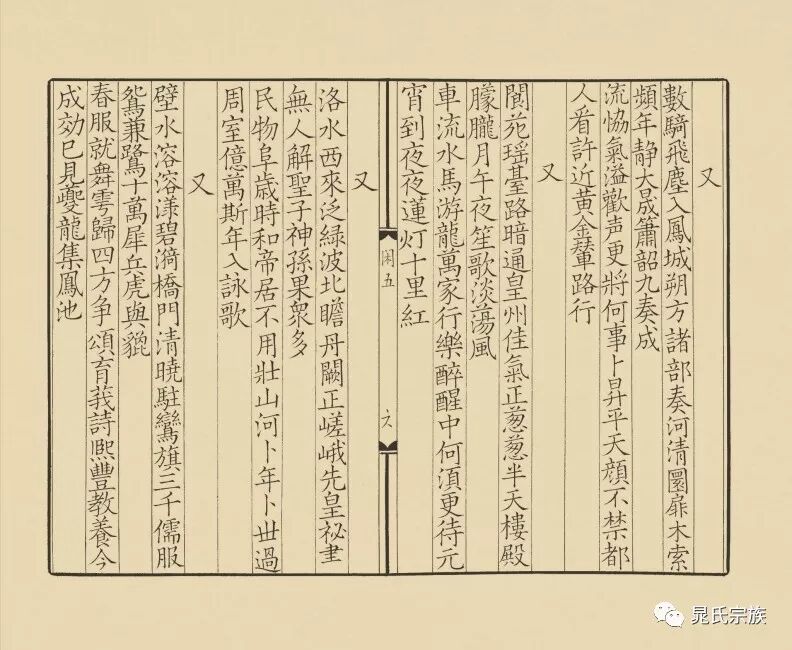 又
數騎飛塵入鳳城朔方諸部奏河清圜扉木索
頻年静大晟簫韶九奏成
流恊氣溢歡声更將何事卜昇平天顔不禁都
人看許近黄金輦路行
又
閬苑瑶臺路暗通皇州佳氣正葱葱半天樓殿
朦朧月午夜笙歌淡蕩風
車流水馬游龍萬家行樂醉醒中何須更待元
宵到夜夜蓮灯十里紅
閑五
六
又
洛水西來泛緑波北瞻丹闕正嵯峨先皇祕書
無人解聖子神孫果衆多
民物阜歳時和帝居不用壯山河卜年卜世過
周室億萬斯年入詠歌
又
璧水溶溶漾碧漪橋門清曉駐鸞旗三千儒服
鴛兼鷺十萬犀兵虎與貔
春服就舞雩歸四方争頌育莪詩熙豐教養今
成効已見夔龍集鳳池
晁氏宗族